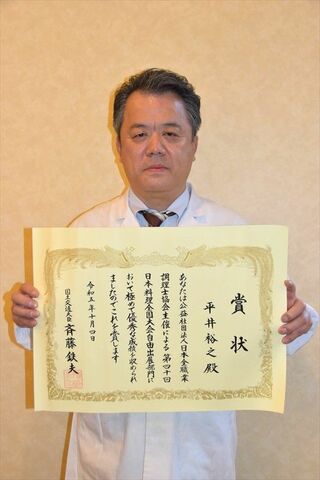 賞状
平井裕之殿
あなたは公益社団法人日本全職業
調理士協会主催による第四十回
日本料理全国大会自由出展部門に
おいて極めて優秀な成績を収められ
ましたのでこれを賞します
令和五年十月四日
国土交通大臣 斉藤鉄夫